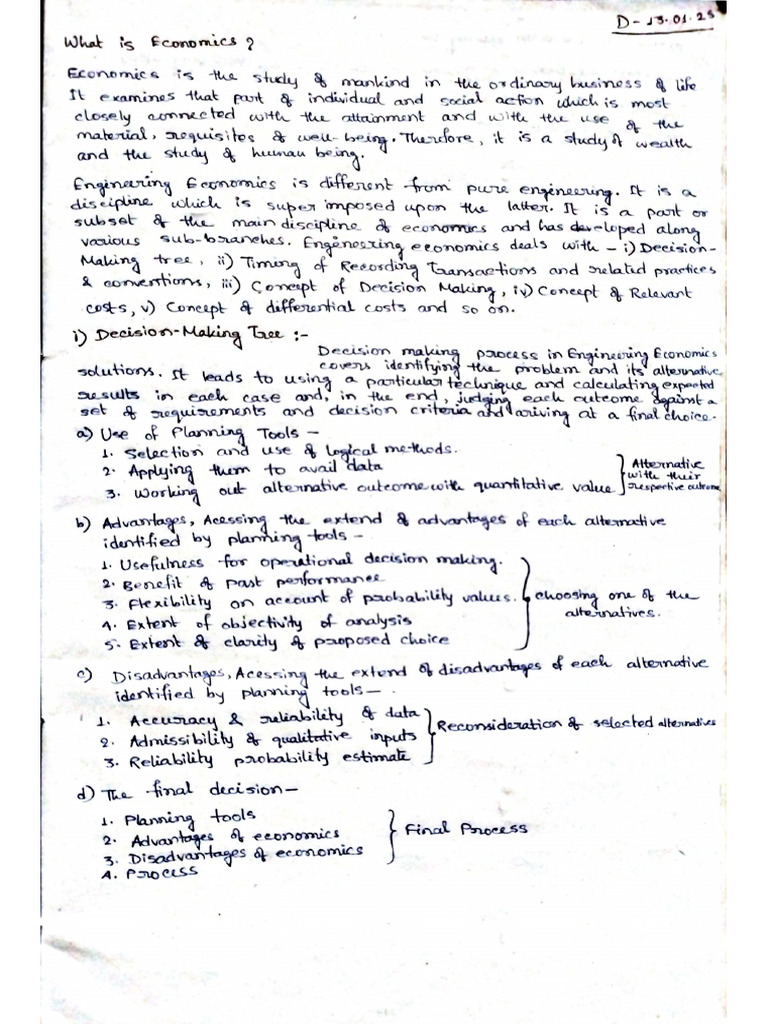 D-13.01.25
What is Economics?
Economics is the study of mankind in the ordinary business of life
It examines that part of individual and social action which is most
closely connected with the attainment and with the use of the
material, requisites of well-being. Therefore, it is a study of wealth
and the study of human being.
Engineering Economics is different from pure engineering. It is a
discipline which is super imposed upon the latter. It is a part or
subset of the main discipline of economics and has developed along
various sub-branches. Engineering economics deals with - i) Decision-
Making tree, ii) Timing of Recording Transactions and related practices
& conventions, iii) Concept of Decision Making, iv) Concept of Relevant
costs, v) Concept of differential costs and so on.
i) Decision-Making Tree :-
Decision making process in Engineering Economics
covers identifying the problem and its alternative
solutions. It leads to using a particular technique and calculating expected
results in each case and, in the end, judging each outcome against a
set of requirements and decision criteria and ariving at a final choice.
a) Use of Planning Tools -
1. Selection and use of logical methods.
2. Applying them to avail data
3. Working out alternative outcome with quantitative value
Alternative
with their
respective outcome
b) Advantages, Acessing the extend of advantages of each alternative
identified by planning tools -
1. Usefulness for operational decision making.
2. Benefit of past performance
3. Flexibility on account of probability values.
4. Extent of objectivity of analysis
5. Extent of clarity of proposed choice
choosing one of the
alternatives.
c) Disadvantages, Acessing the extend of disadvantages of each alternative
identified by planning tools - .
1. Accuracy & reliability of data
2. Admissibility of qualitative inputs
3. Reliability probability estimate
Reconsideration of selected alternatives
d) The final decision -
1. Planning tools
2. Advantages of economics
3. Disadvantages of economics
4. Process
Final Process